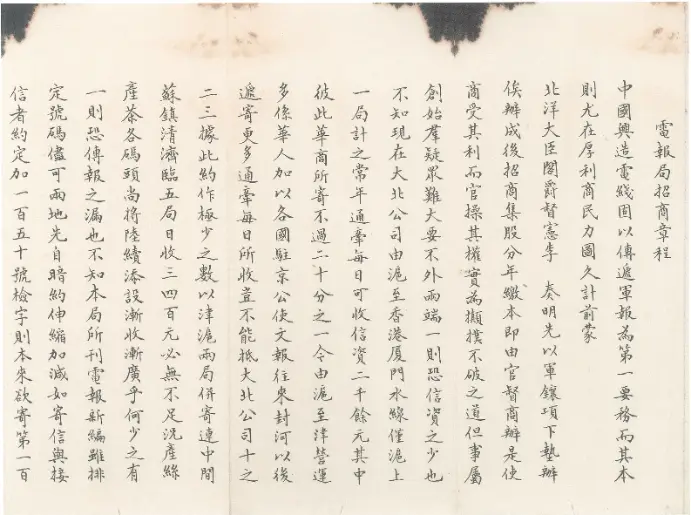 電報局招商章程
中國興造電綫固以傳遞軍報為第一要務而其本
則尤在厚利商民力圖久計前蒙
北洋大臣閣爵督憲李 奏明先以軍餉項下墊辦
俟辦成後招商集股分年繳本即由官督商辦是使
商受其利而官操其權實為顛撲不破之道但事屬
創始羣疑衆難大要不外兩端一則恐信資之少也
不知現在大北公司由滬至香港厦門水線僅滬上
一局計之常年通牽每日可收信資二千餘元其中
彼此華商所寄不過二十分之一令由滬至津營運
多係華人加以各國駐京公使文報往来封河以後
遞寄更多通牽每日所收豈不能抵大北公司十之
二三據此約作極少之數以津滬兩局併寄連中間
蘇鎮清濟臨五局日收三四百元必無不足況產絲
產茶各碼頭尚將陸續添設漸收漸廣乎何少之有
一則恐傳報之漏也不知本局所刊電報新編雖排
定號碼儘可兩地先自暗約伸縮加減如寄信與接
信者約定加一百五十號檢字則本來欲寄第一百